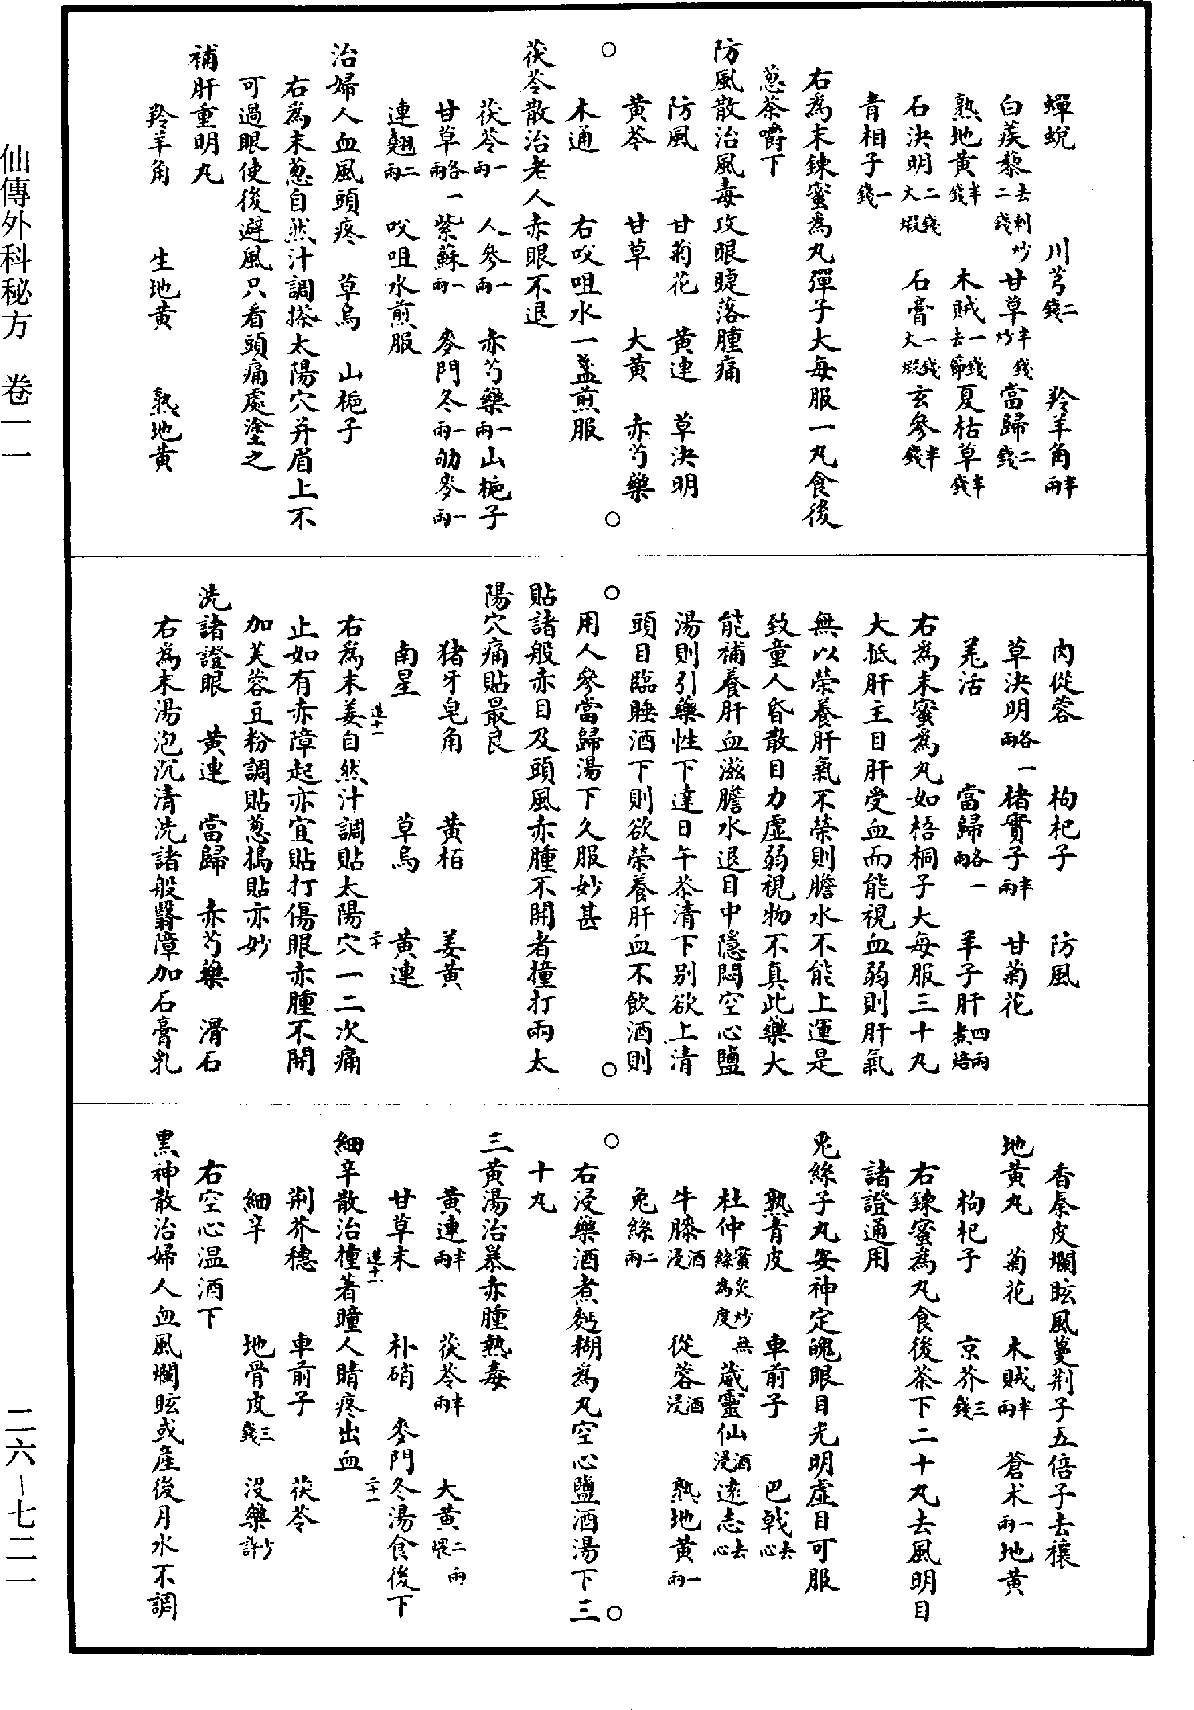 蟬蛻　川芎二錢　羚羊角半兩
白蒺藜去刺炒二錢　甘草半錢炒　當歸二錢
熟地黃半錢　木賊一錢去節　夏枯草半錢
石決明二錢火煅　石膏一錢火煅　玄參半錢
青相子一錢
右為末鍊蜜為丸彈子大每服一丸食後
葱茶嚼下
防風散治風毒攻眼睫落腫痛
防風　甘菊花　黃連　草決明
黃芩　甘草　大黃　赤芍藥
木通　右㕮咀水一盞煎服
茯苓散治老人赤眼不退
茯苓一兩　人參一兩　赤芍藥一兩　山梔子
甘草各一兩　紫蘇一兩　麥門冬一兩　劬麥一兩
連翹二兩　㕮咀水煎服
治婦人血風頭疼　草烏　山梔子
右為末葱自然汁調搽太陽穴并眉上不
可過眼使後避風只看頭痛處塗之
補肝重明丸
羚羊角　生地黃　熟地黃
肉從蓉　枸杞子　防風
草決明各一兩　楮實子半兩　甘菊花
羌活　當歸各一兩　羊子肝四兩煮焙
右為末蜜為丸如梧桐子大每服三十丸
大抵肝主目肝受血而能視血弱則肝氣
無以榮養肝氣不榮則膽水不能上運是
致童人昏散目力虛弱視物不真此藥大
能補養肝血滋膽水退目中隱悶空心鹽
湯則引藥性下達日午茶清下別欲上清
頭目臨睡酒下則欲榮養肝血不飲酒則
用人參當歸湯下久服妙甚
貼諸般赤目及頭風赤腫不開者撞打兩太
陽穴痛貼最良
猪牙皂角　黃栢　姜黃
南星　草烏　黃連
右為末姜自然汁調貼太陽穴一二次痛
止如有赤障起亦宜貼打傷眼赤腫不開
加芙蓉豆粉調貼葱搗貼亦妙
洗諸證眼　黃連　當歸　赤芍藥　滑石
右為末湯泡沉清洗諸般翳障加石膏乳
香秦皮爛眩風蔓荆子五倍子去穰
地黃丸　菊花　木賊半兩　蒼术一兩　地黃
枸杞子　京芥三錢
右鍊蜜為丸食後茶下二十丸去風明目
諸證通用
兎絲子丸安神定魄眼目光明虛目可服
熟青皮　車前子　巴戟去心
杜仲蜜炙炒無絲為度　葳靈仙酒浸　遠志去心
牛膝酒浸　從蓉酒浸　熟地黃一兩
兔絲二兩
右浸藥酒煮麪糊為丸空心鹽酒湯下三
十丸
三黃湯治暴赤腫熱毒
黃連半兩　茯苓半兩　大黃二兩煨
甘草末　朴硝　麥門冬湯食後下
細辛散治撞著瞳人睛疼出血
荆芥穗　車前子　茯苓
細辛　地骨皮三錢　沒藥少許
右空心温酒下
黑神散治婦人血風爛眩或產後月水不調
仙傳外科秘方　卷一一
二六－七二一